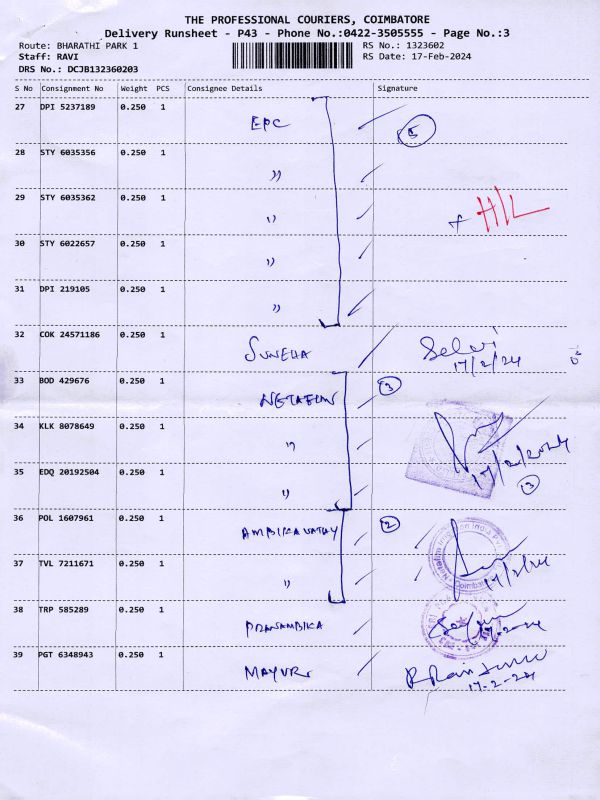 THE PROFESSIONAL COURIERS, COIMBATORE
Delivery Runsheet - P43 - Phone No.:0422-3505555 - Page No.:3
Route: BHARATHI PARK 1 RS No.: 1323602
Staff: RAVI RS Date: 17-Feb-2024
DRS No.: DCJB132360203
S No Consignment No Weight PCS Consignee Details Signature
27 DPI 5237189 0.250 1 EPC 5
28 STY 6035356 0.250 1 "
29 STY 6035362 0.250 1 "
30 STY 6022657 0.250 1 "
31 DPI 219105 0.250 1 "
32 COK 24571186 0.250 1 SUNEHA Selvi
17/2/24
33 BOD 429676 0.250 1 NETAFIM 3
34 KLK 8078649 0.250 1 "
17/2/2024
35 EDQ 20192504 0.250 1 " 3
36 POL 1607961 0.250 1 2
37 TVL 7211671 0.250 1 " 17/2/24
38 TRP 585289 0.250 1 PRANAMBIKA
39 PGT 6348943 0.250 1 MAYURI
17-2-24